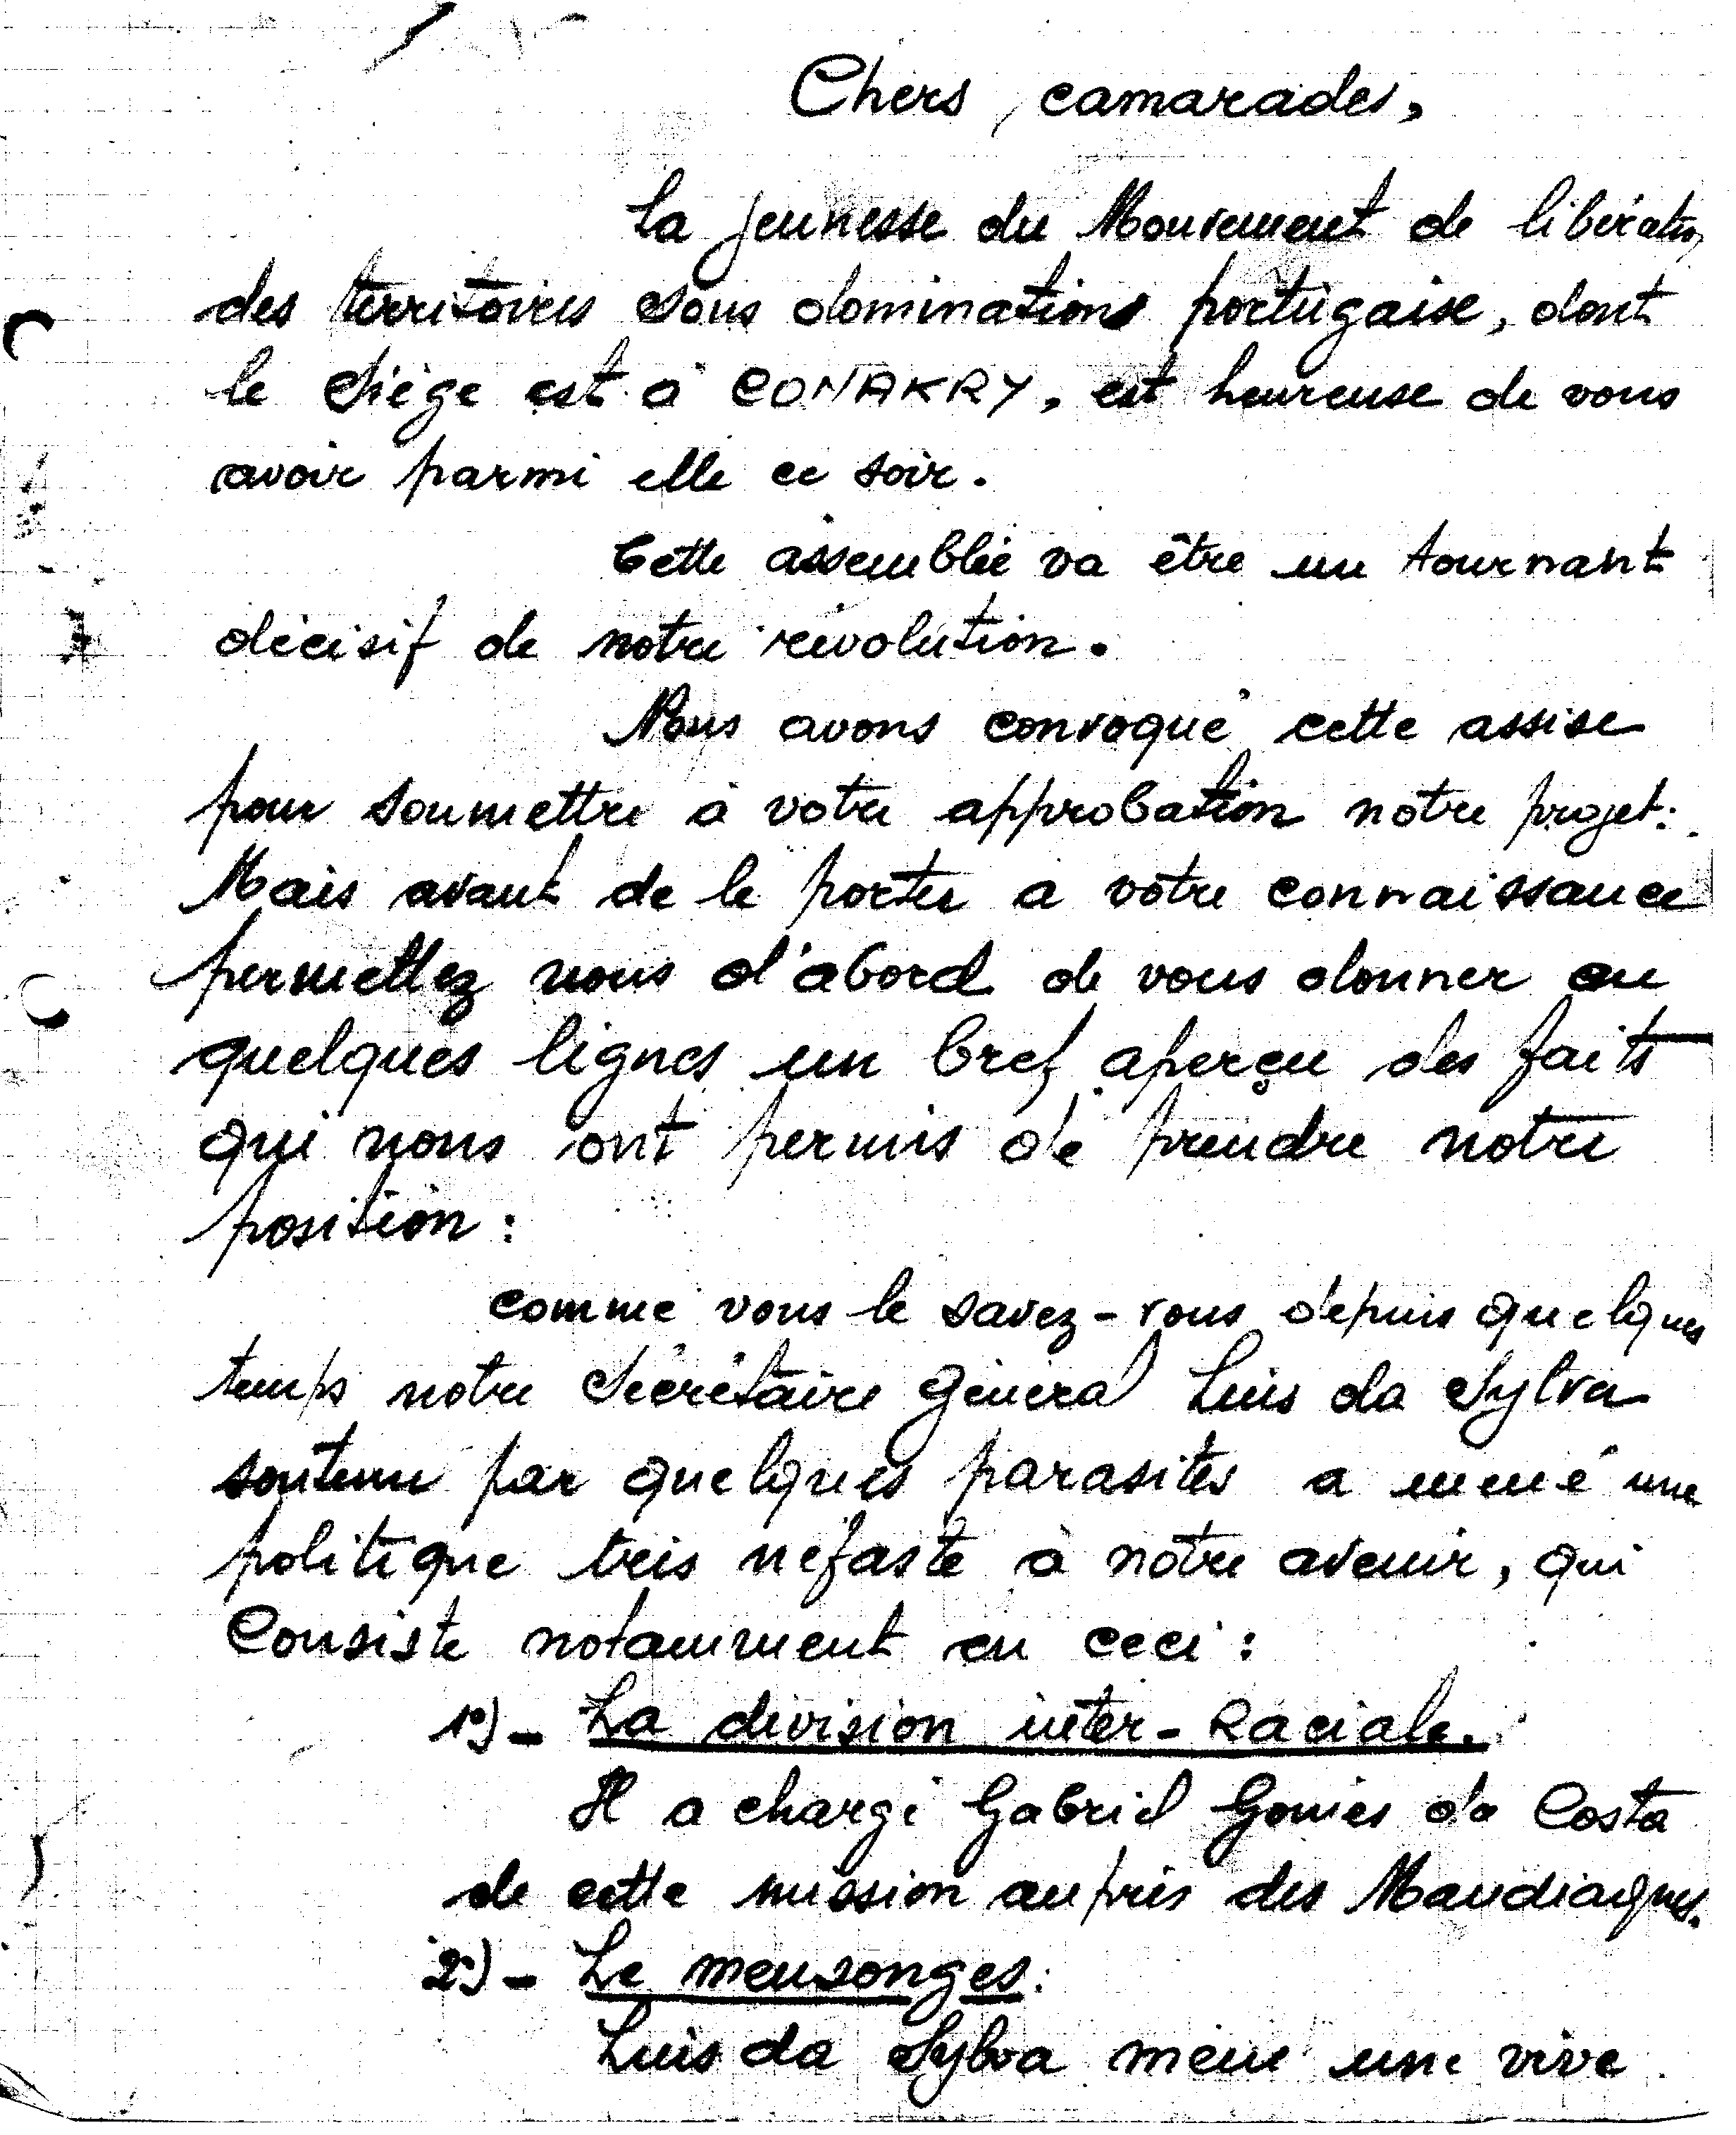 Chers, camarades,
La jeunesse du Mouvement de libération
des territoires sous dominations portugaise, dont
le siège est à CONAKRY, est heureuse de vous
avoir parmi elle ce soir.
Cette assemblée va être un tournant
décisif de notre révolution.
Nous avons convoqué cette assise
pour soumettre à votre approbation notre projet:
Mais avant de le porter a votre connaissance
permettez nous d'abord de vous donner en
quelques lignes un bref aperçu des faits
qui nous ont permis de prendre notre
position:
comme vous le savez-vous depuis quelques
temps notre Sécrétaire général Luis da Sylva
soutenu par quelques parasites a mené une
politique très néfaste à notre avenir, qui
Consiste notamment en ceci:
1°)- La division inter-Raciale.
Il a chargé Gabriel Gomes da Costa
de cette mission auprès des Mandiagues.
2°)- Le mensonges:
Luis da Sylva mène une vive